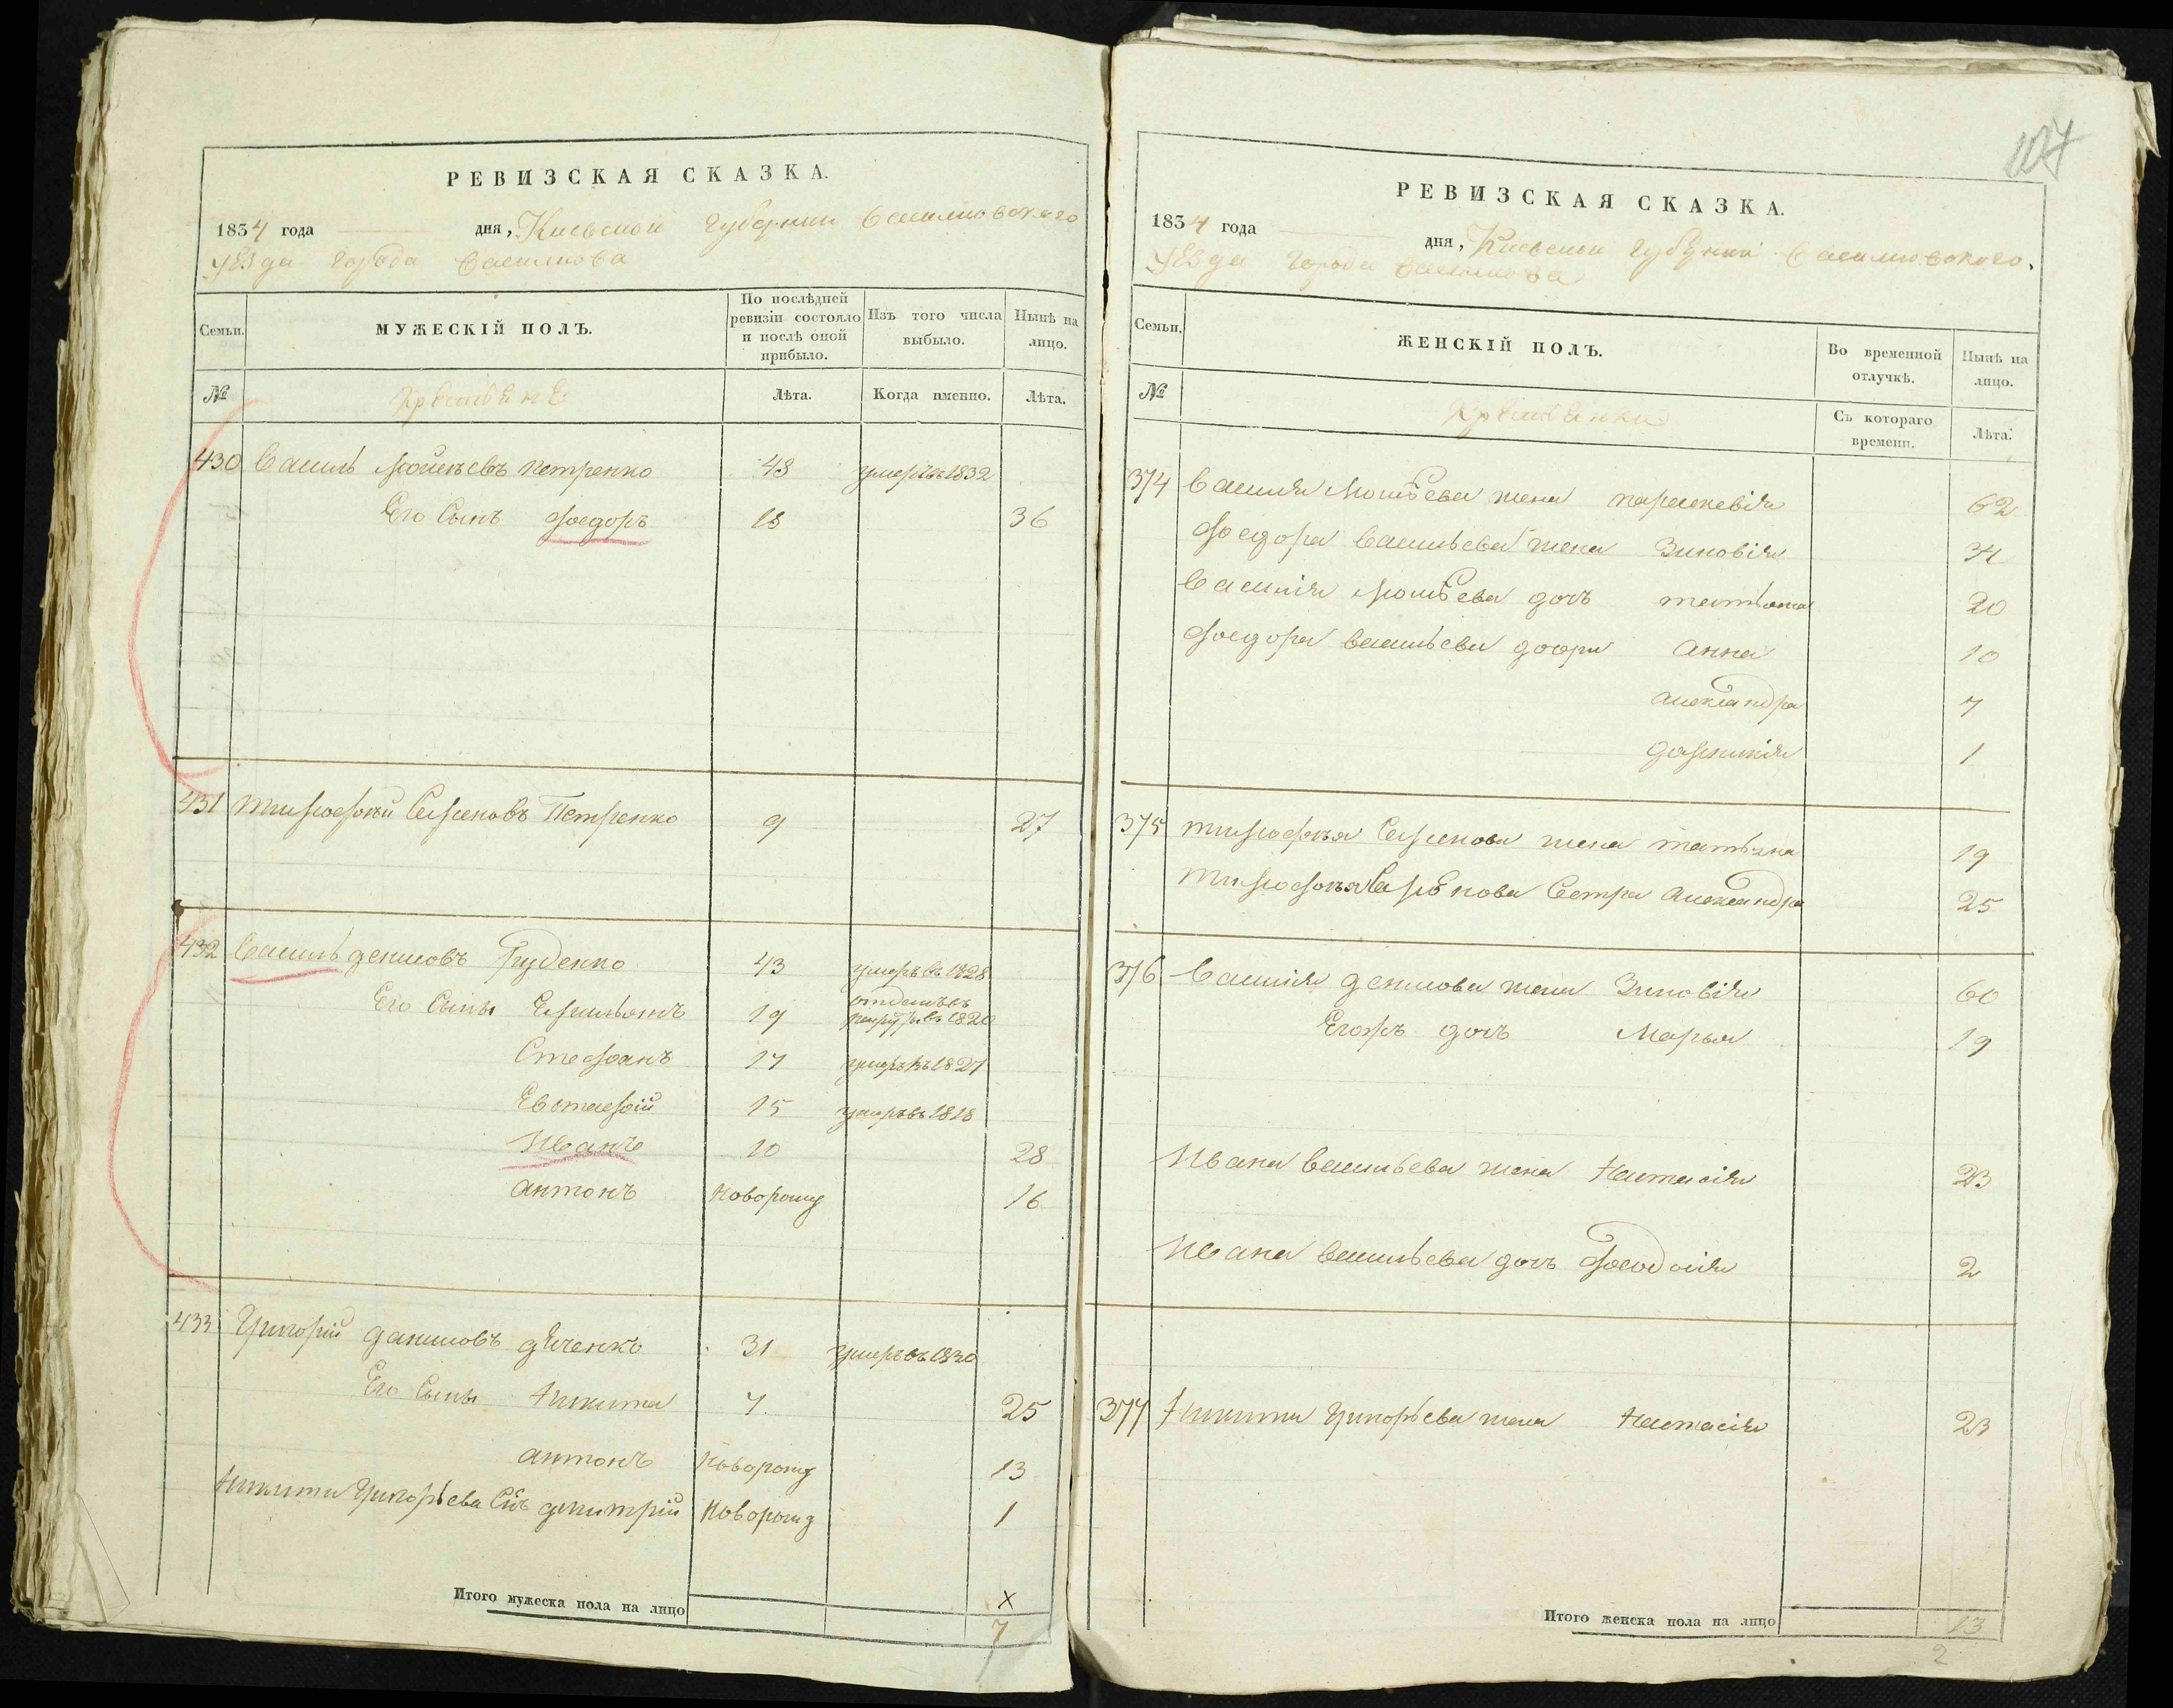 РЕВИЗСКАЯ СКАЗКА.
1834 года дня, Киевской Губернии Васильковскаго
уѣзда Города Василькова
Семьи. МУЖЕСКІЙ ПОЛЪ. По послѣдней ревизіи состояло и послѣ оной прибыло. Изъ того числа выбыло. Нынѣ на лицо.
№ Лѣта. Когда именно. Лѣта.
430 Василь Мойсѣевъ Петренко 48 умеръ въ 1832
Его Сынъ Фоедоръ 18 36
431 Тимофѣй Семеновъ Петренко 9 27
432 Василь денисовъ Руденко 43 умеръ въ 1828
Его Сыны Емильянъ 19 отданъ въ рекруты въ 1820
Стефанъ 17 умеръ въ 1827
Евстафій 15 умеръ въ 1818
Иванъ 10 28
антонъ новорожд 16
433 Григорій даниловъ дѣченко 31 умеръ въ 1830
Его Сыны Никита 7 25
антонъ новорожд 13
Никиты Григорьева Снъ дмитрій новорожд 1
Итого мужеска пола на лицо 7
107
РЕВИЗСКАЯ СКАЗКА.
1834 года дня, Киевской Губернии Васильковскаго
уѣзда Города Василькова
Семьи. ЖЕНСКІЙ ПОЛЪ. Во временной отлучкѣ. Нынѣ на лицо.
№ Съ котораго времени. Лѣта.
374 Василія Мойсѣева жена параскевія 62
Фоедора Васильева жена Зиновія 34
Василія Мойсѣева дочъ татьяна 20
Фоедора васильева дочери Анна 10
александра 7
1
375 тимофѣя Семенова жена татьяна 19
тимофѣя Семѣнова Сетра александра 25
376 Василія денисова жена Зиновія 60
Егожъ дочъ Марья 19
Ивана васильева жена Настасія 23
Ивана васильева дочъ Феодосія 2
377 Никиты Григорьева жена Настасія 23
Итого женска пола на лицо 13
2